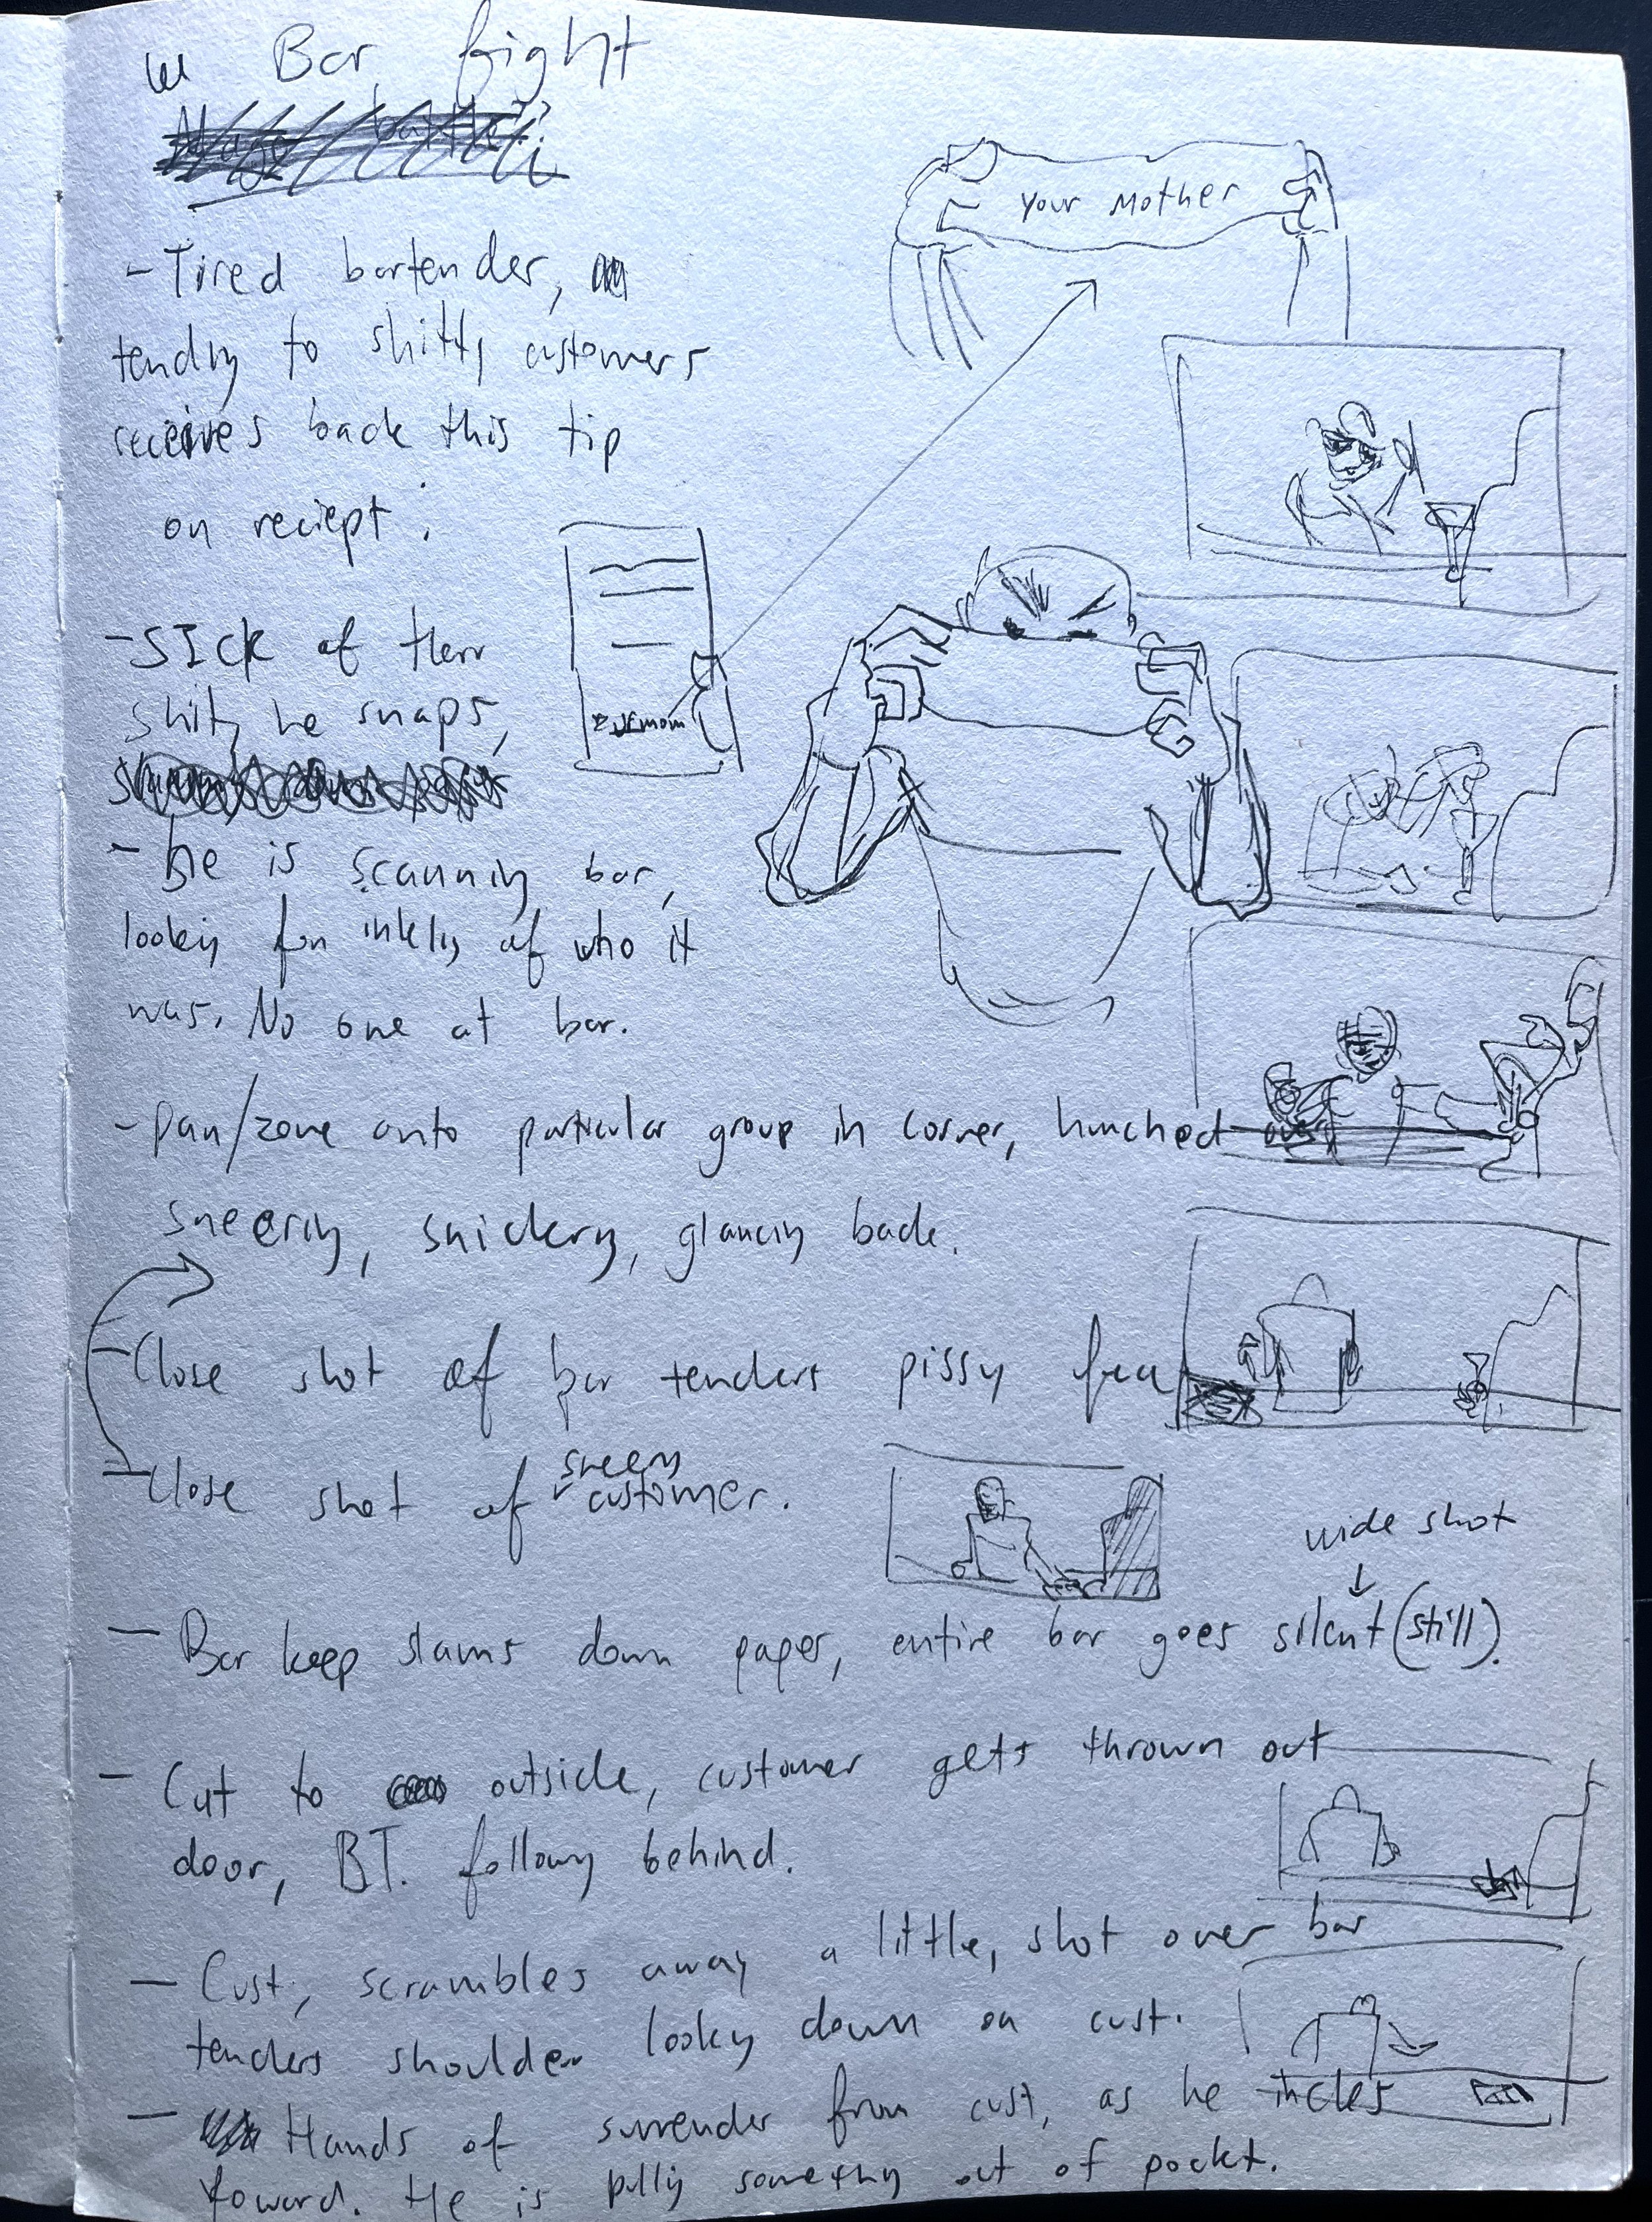 Bar fight
Your Mother
- Tired bartender,
tending to shitty customers
receives back this tip
on reciept :
mom
- SICK of their
shit, he snaps,
- he is scanning bar,
looking for inkling of who it
was. No one at bar.
- pan/zone onto particular group in corner, hunched over
sneering, snickering, glancing back.
- Close shot of bar tenders pissy face
- Close shot of sneering customer.
wide shot
- Bar keep slams down paper, entire bar goes silent (still).
- Cut to outside, customer gets thrown out
door, BT. following behind.
- Cust, scrambles away a little, shot over bar
tenders shoulder looking down on cust.
- Hands of surrender from cust, as he inches
foward. He is pulling something out of pocket.